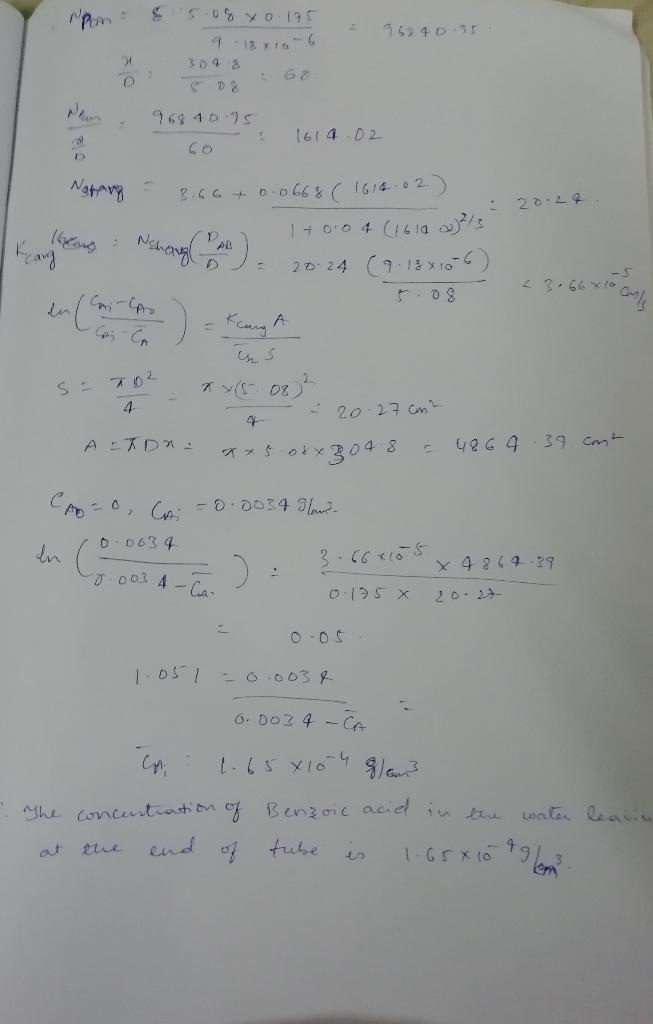 N Pem = 5.08 x 0.175 / 9.18 x 10^-6 = 96840.95
x/D = 304.8 / 5.08 = 60
N Pem / (x/D) = 96840.95 / 60 = 1614.02
N shavg = 3.66 + 0.0668 (1614.02) / 1 + 0.04 (1614.02)^2/3 = 20.24
K cavg = N shavg (D AB / D) = 20.24 (9.18 x 10^-6) / 5.08 = 3.66 x 10^-5 cm/s
ln (C Ai - C A0 / C Ai - C̄ A) = K cavg A / ū S
S = πD² / 4 = π x (5.08)² / 4 = 20.27 cm²
A = πDx = π x 5.08 x 304.8 = 4864.39 cm²
C A0 = 0, C Ai = 0.0034 g/cm³
ln (0.0034 / 0.0034 - C̄ A) = 3.66 x 10^-5 x 4864.39 / 0.175 x 20.27
= 0.05
1.051 = 0.0034 / 0.0034 - C̄ A =
C̄ A = 1.65 x 10^-4 g/cm³
The concentration of Benzoic acid in the water leavin
at the end of tube is 1.65 x 10^-4 g/cm³.